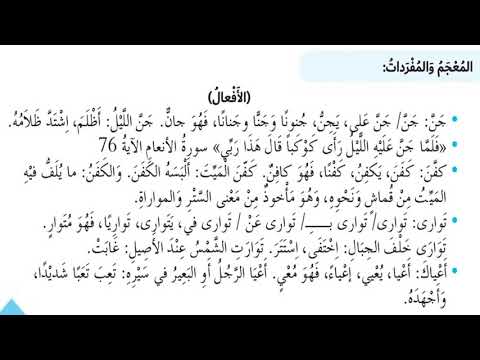 المُعْجَمُ وَالمُفْرَداتُ:
(الأَفْعالُ)
• جَنَّ: جَنَّ/ جَنَّ عَلى، يَجِنُّ، جُنونًا وَجَنًّا وَجَنانًا، فَهُوَ جانٌّ. جَنَّ اللَّيْلُ: أَظْلَمَ، اِشْتَدَّ ظَلامُهُ.
• «فَلَمَّا جَنَّ عَلَيْهِ اللَّيْلُ رَأَى كَوْكَبًا قَالَ هَذَا رَبِّي» سورةُ الأنعامِ الآيةُ 76
• كفَّنَ: كَفَنَ، يَكفِنُ، كَفْنًا، فَهُوَ كافِنٌ. كَفَّنَ المَيِّتَ: أَلْبَسَهُ الكَفَنَ. وَالكَفَنُ: ما يُلَفُّ فيْهِ
المَيِّتُ مِنْ قُماشٍ وَنَحْوِهِ، وَهُوَ مَأْخوذٌ مِنْ مَعْنى السَّتْرِ وَالمواراةِ.
• تَوارى: تَوارى/ تَوارى بـــ/ تَوارى عَنْ / تَوارى في، يَتَوارى، تَوارِيًا، فَهُوَ مُتَوارٍ.
تَوَارَى خَلْفَ الجِبَالِ: اِخْتَفَى، اِسْتَتَرَ. تَوَارَتِ الشَّمْسُ عِنْدَ الأَصِيلِ: غَابَتْ.
• أَعْياكَ: أَعْيا، يُعْيي، إِعْياءً، فَهُوَ مُعْيٍ. أَعْيَا الرَّجُلُ أَوِ البَعِيرُ في سَيْرِهِ: تَعِبَ تَعَبًا شَديْدًا،
وَأَجْهَدَهُ.